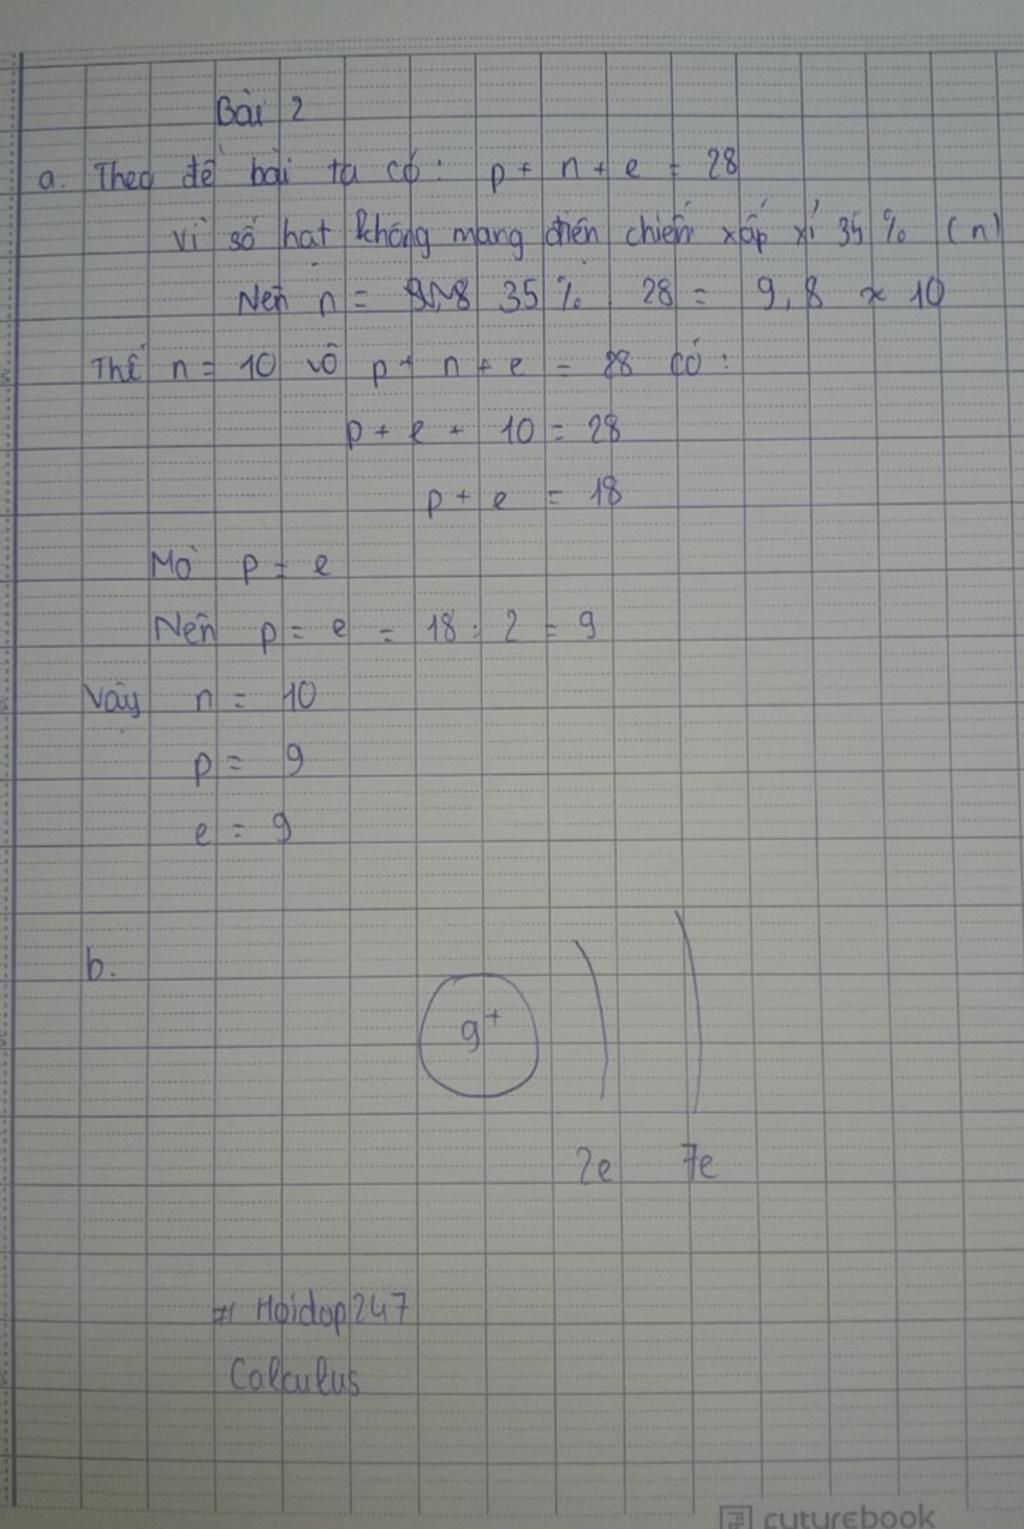 Bài 2
a. Theo đề bài ta có: p + n + e = 28
Vì số hạt không mang điện chiếm xấp xỉ 35 % (n)
Nên n = 35 % . 28 = 9,8 ≈ 10
Thế n = 10 vô p + n + e = 28 có:
p + e + 10 = 28
p + e = 18
Mà p = e
Nên p = e = 18 : 2 = 9
Vậy n = 10
p = 9
e = 9
b.
9+
2e 7e
# Hoidap247
Calculus
cuturebook